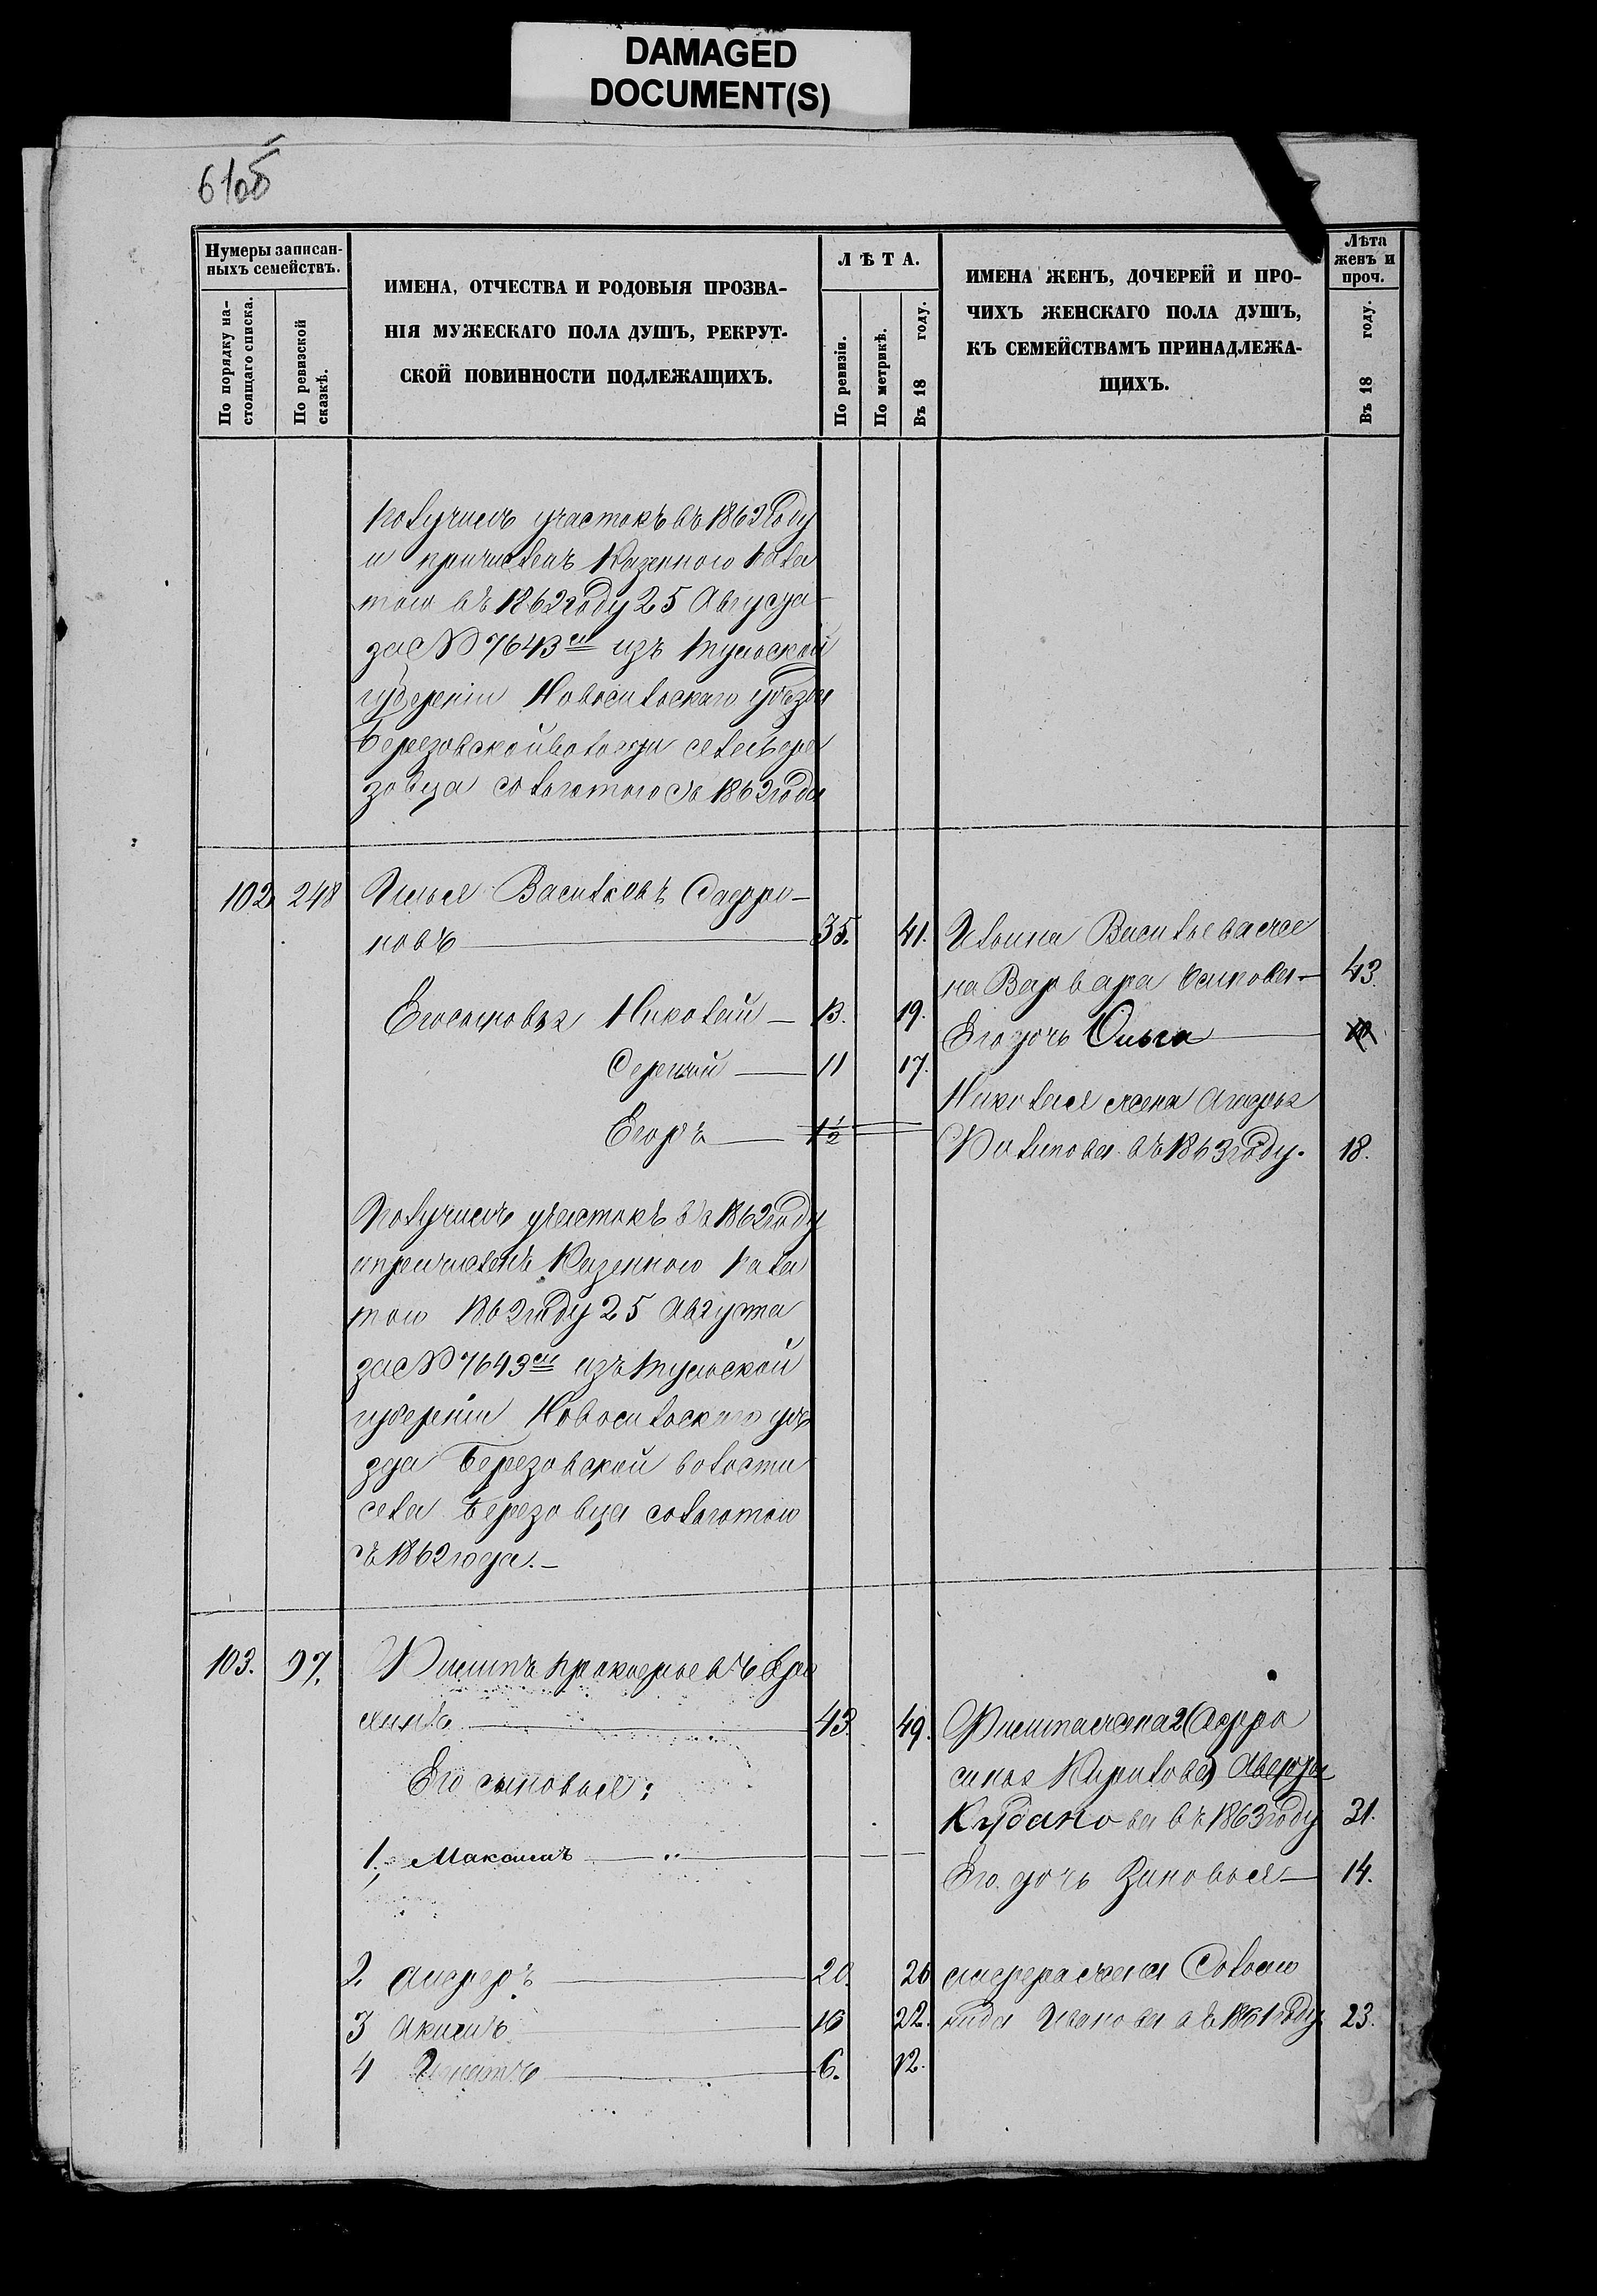 DAMAGED
DOCUMENT(S)
Нумеры записан-
ныхъ семействъ.
По порядку на-
стоящаго списка.
По ревизской
сказкѣ.
ИМЕНА, ОТЧЕСТВА И РОДОВЫЯ ПРОЗВА-
НІЯ МУЖЕСКАГО ПОЛА ДУШЪ, РЕКРУТ-
СКОЙ ПОВИННОСТИ ПОДЛЕЖАЩИХЪ.
ЛѢТА.
По ревизіи.
По метрикѣ.
Въ 18 году.
ИМЕНА ЖЕНЪ, ДОЧЕРЕЙ И ПРО-
ЧИХЪ ЖЕНСКАГО ПОЛА ДУШЪ,
КЪ СЕМЕЙСТВАМЪ ПРИНАДЛЕЖА-
ЩИХЪ.
Лѣта
женъ и
проч.
Въ 18 году.
получилъ участокъ въ 1862 году
и причисленъ Казенною пала
тою въ 1862 году 25 Августа
за № 7643 изъ Тульской
губерніи Новосильскаго уѣзда
Березовской волости села Бере
зовца со льготою съ 1862 года
102 248 Илья Васильевъ Сафро-
новъ 35. 41. Ильи Васильева же
на Варвара Осипова 43.
Его сыновья Николай 13. 19.
Его дочь Ольга
Сергѣй 11 17.
Николая жена
Егоръ 1½
въ 1863 году. 18.
Получилъ участокъ въ 1862 году
и причисленъ Казенною пала
тою 1862 году 25 Августа
за № 7643 изъ Тульской
губерніи Новосильскаго уѣ
зда Березовской волости
села Березовца со льготою
съ 1862 года.
103. 97. Прокофьевъ
43 49. жена 2
Его сыновья:
Кирилова
въ 1863 году 31.
1. Максимъ
Его дочь Зиновья 14.
2 20. 26 жена Соломо
3 Акимъ 16 22. нида Иванова въ 1861 году 23.
4 Игнатъ 6. 12.